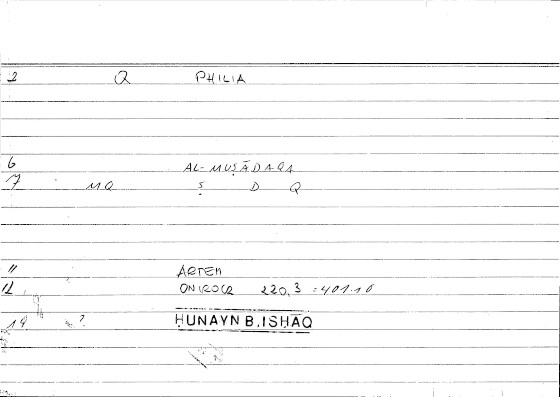 2 Q PHILIA
6 AL-MUṢĀDAQA
7 MQ Ṣ D Q
11 ARTEM
12 ONIROCR 220,3 = 401.16
14 ? ḤUNAYN B. ISḤĀQ